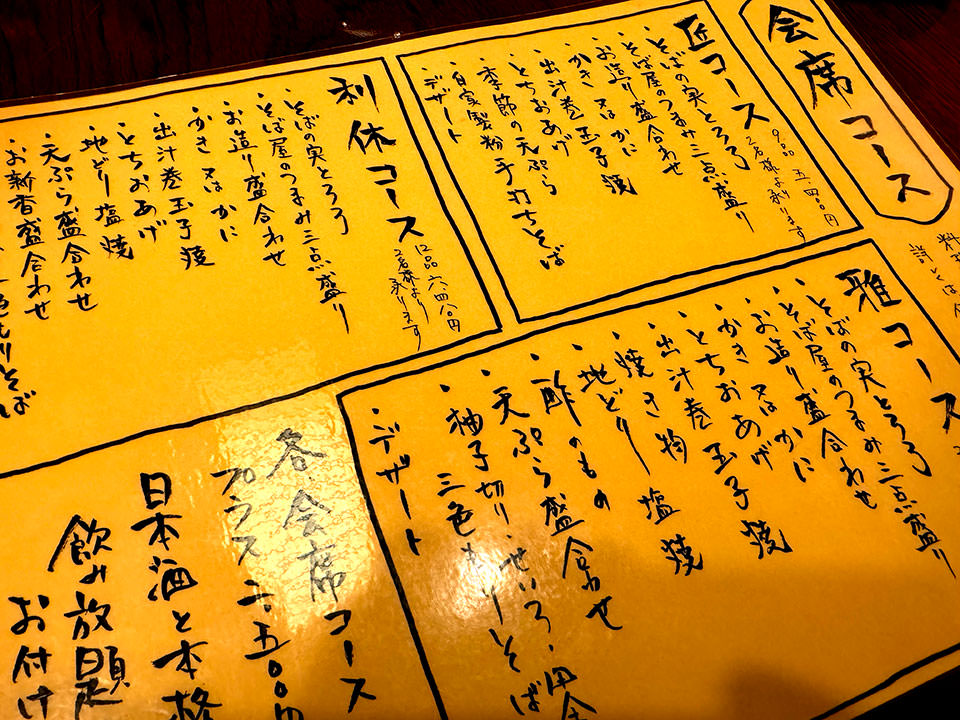 会席コース
匠コース
9品 五、四〇〇円
2名様より承ります
・そばの実とろろ
・そば屋のつまみ三点盛り
・お造り盛合わせ
・かき 又は かに
・出汁巻玉子焼
・とちおあげ
・季節の天ぷら
・自家製粉手打ちそば
・デザート
利休コース
12品 六、四八〇円
2名様より承ります
・そばの実とろろ
・そば屋のつまみ三点盛り
・お造り盛合わせ
・かき 又は かに
・出汁巻玉子焼
・とちおあげ
・地どり塩焼
・天ぷら盛合わせ
・お新香盛合わせ
色もりそば
雅コース
・そばの実とろろ
・そば屋のつまみ三点盛り
・お造り盛合わせ
・かき 又は かに
・とちおあげ
・出汁巻玉子焼
・焼き物
・地どり塩焼
・酢のもの
・天ぷら盛合わせ
・柚子切り・せいろ・田舎
三色もりそば
・デザート
各会席コース
プラス二、五〇〇円
日本酒と本格
飲み放題
お付け